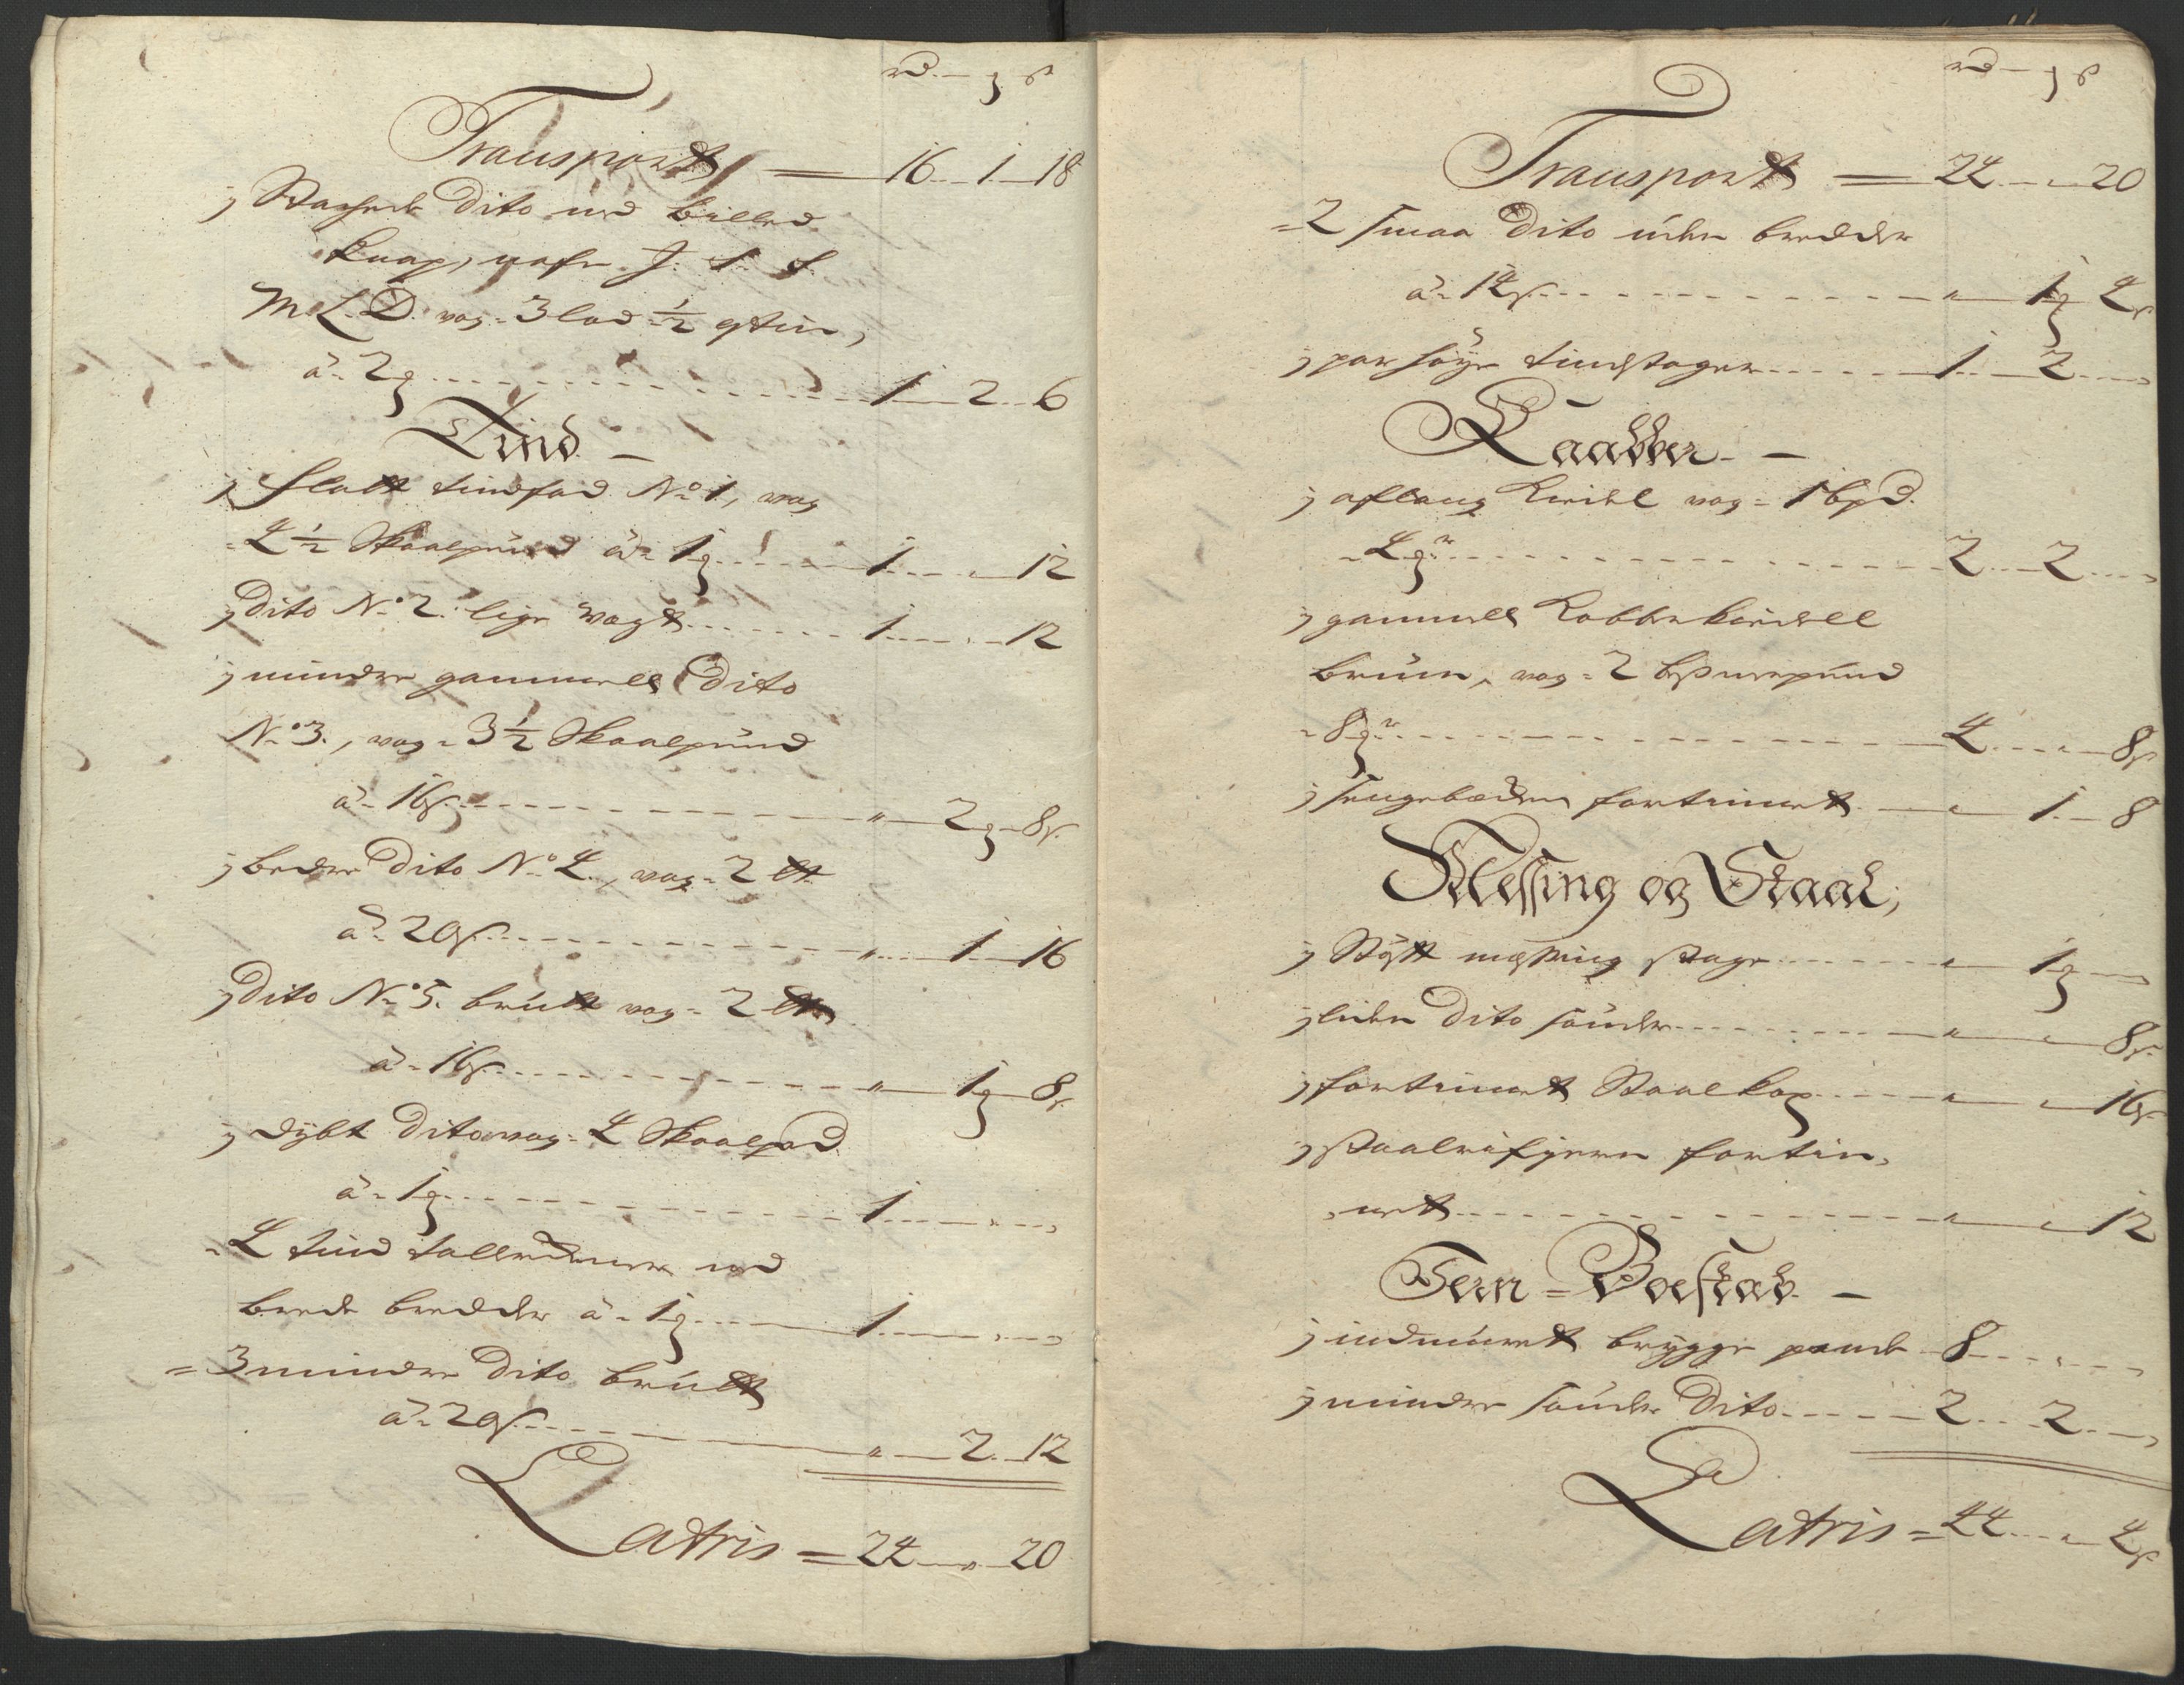 rd. – ꝫ ß
Transport = 16 – 1 – 18
j Stachede Dito med billed
knap, nafn J. S. S.
M L. D. vog = 3 lod ½ qtin,
à 2ꝫ ........ 1 – 2 – 6
Tind –
j flatt tindfad No 1, vog
4½ Skaalpund à 1ꝫ ..... 1 ... „ – 12
j Dito No 2. lige vogt ....... 1 ... „ – 12
j mindre gammelt Dito
No 3., vog = 3½ Skaalpund
à 16ß ........ „ – 2ꝫ – 8ß
j bedre Dito No 4., vog = 2 ℔
à 20ß ........ „ – 1 – 16
j Dito No 5. brudt vog = 2 ℔
à 16ß ........ „ – 1ꝫ – 8ß
j dybt Dito vog = 4 Skaalpd.
à 1ꝫ ........ 1 – „ – „
4 tind tallerkener med
brede bredder à 1ꝫ .... 1 – „ – „
= 3 mindre Dito brudt
à 20ß ........ „ – 2 – 12
Latris = 24 – „ – 20
rd – ꝫ ß
Transport = 24 – „ – 20
= 2 smaa Dito uden bredder
à 14ß ........ „ – 1ꝫ 4ß
j par høye tindstager ..... 1 – 2 – „
Kaabber –
j aflang Kiedel vog = 1 bpd.
4ꝫr ........ 2 – 2 – „
j gammel Kobberkiedell
bruun, vog = 2 bismerpund
8ꝫr ........ 4 – „ – 8ß
j sengebecken fortinnet – „ – 1 – 8
Messing og Staal,
j Støtt messing stage ...... „ – 1ꝫ – „
j liden Dito sønder ........ „ – „ – 8ß
j fortinnet Staalkop ..... „ – „ – 16ß
j staalrifjern fortin-
net ........ „ – „ – 12
Jern = Boeskab –
j indmuret brygge pande 8 – „ – „
j mindre sønder Dito ..... 2 – 2 – „
Latris = 44 – „ – 4ß